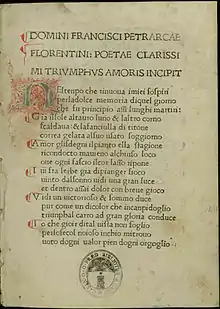 DOMINI FRANCISCI PETRARCAE
FLORENTINI: POETAE CLARISSI
MI TRIVMPHVS AMORIS INCIPIT
NEl tempo che rinuova imiei sospiri
per la dolce memoria di quel giorno
che fu principio assi lunghi martiri:
Gia il sole al tauro luno & laltro corno
scaldaua: & la fanciulla di titone
correa gelata al suo usato soggiorno
Amor gli sdegni il pianto e la stagione
ricondocto mauieno al chiuso loco
oue ogni fascio il cor lasso ripone
Iui fra lerbe gia di pianger fioco
uinto dal sonno uidi una gran luce
et dentro assai dolor con breue gioco
Vidi un uictorioso & sommo duce
pur come un di color che in campidoglio
triumphal carro ad gran gloria conduce
Io che gioir di tal uista non soglio
per lo secol noioso in chio mi trouo
uoto dogni ualor pien dogni orgoglio